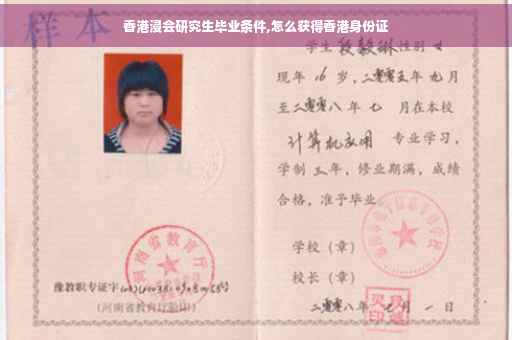 香港浸会研究生毕业条件,怎么获得香港身份证
样本
学生 段毅琳 性别 女
现年 16 岁,二零零五年 九 月
至二零零八 年 七 月在本校
计算机应用 专业学习,
学制 三 年,修业期满,成绩
合格,准予毕业
学校(章)
校长(章)
二零零八 年 月 一 日
河南省教育厅
豫教职专证字
(河南省教育厅验印)